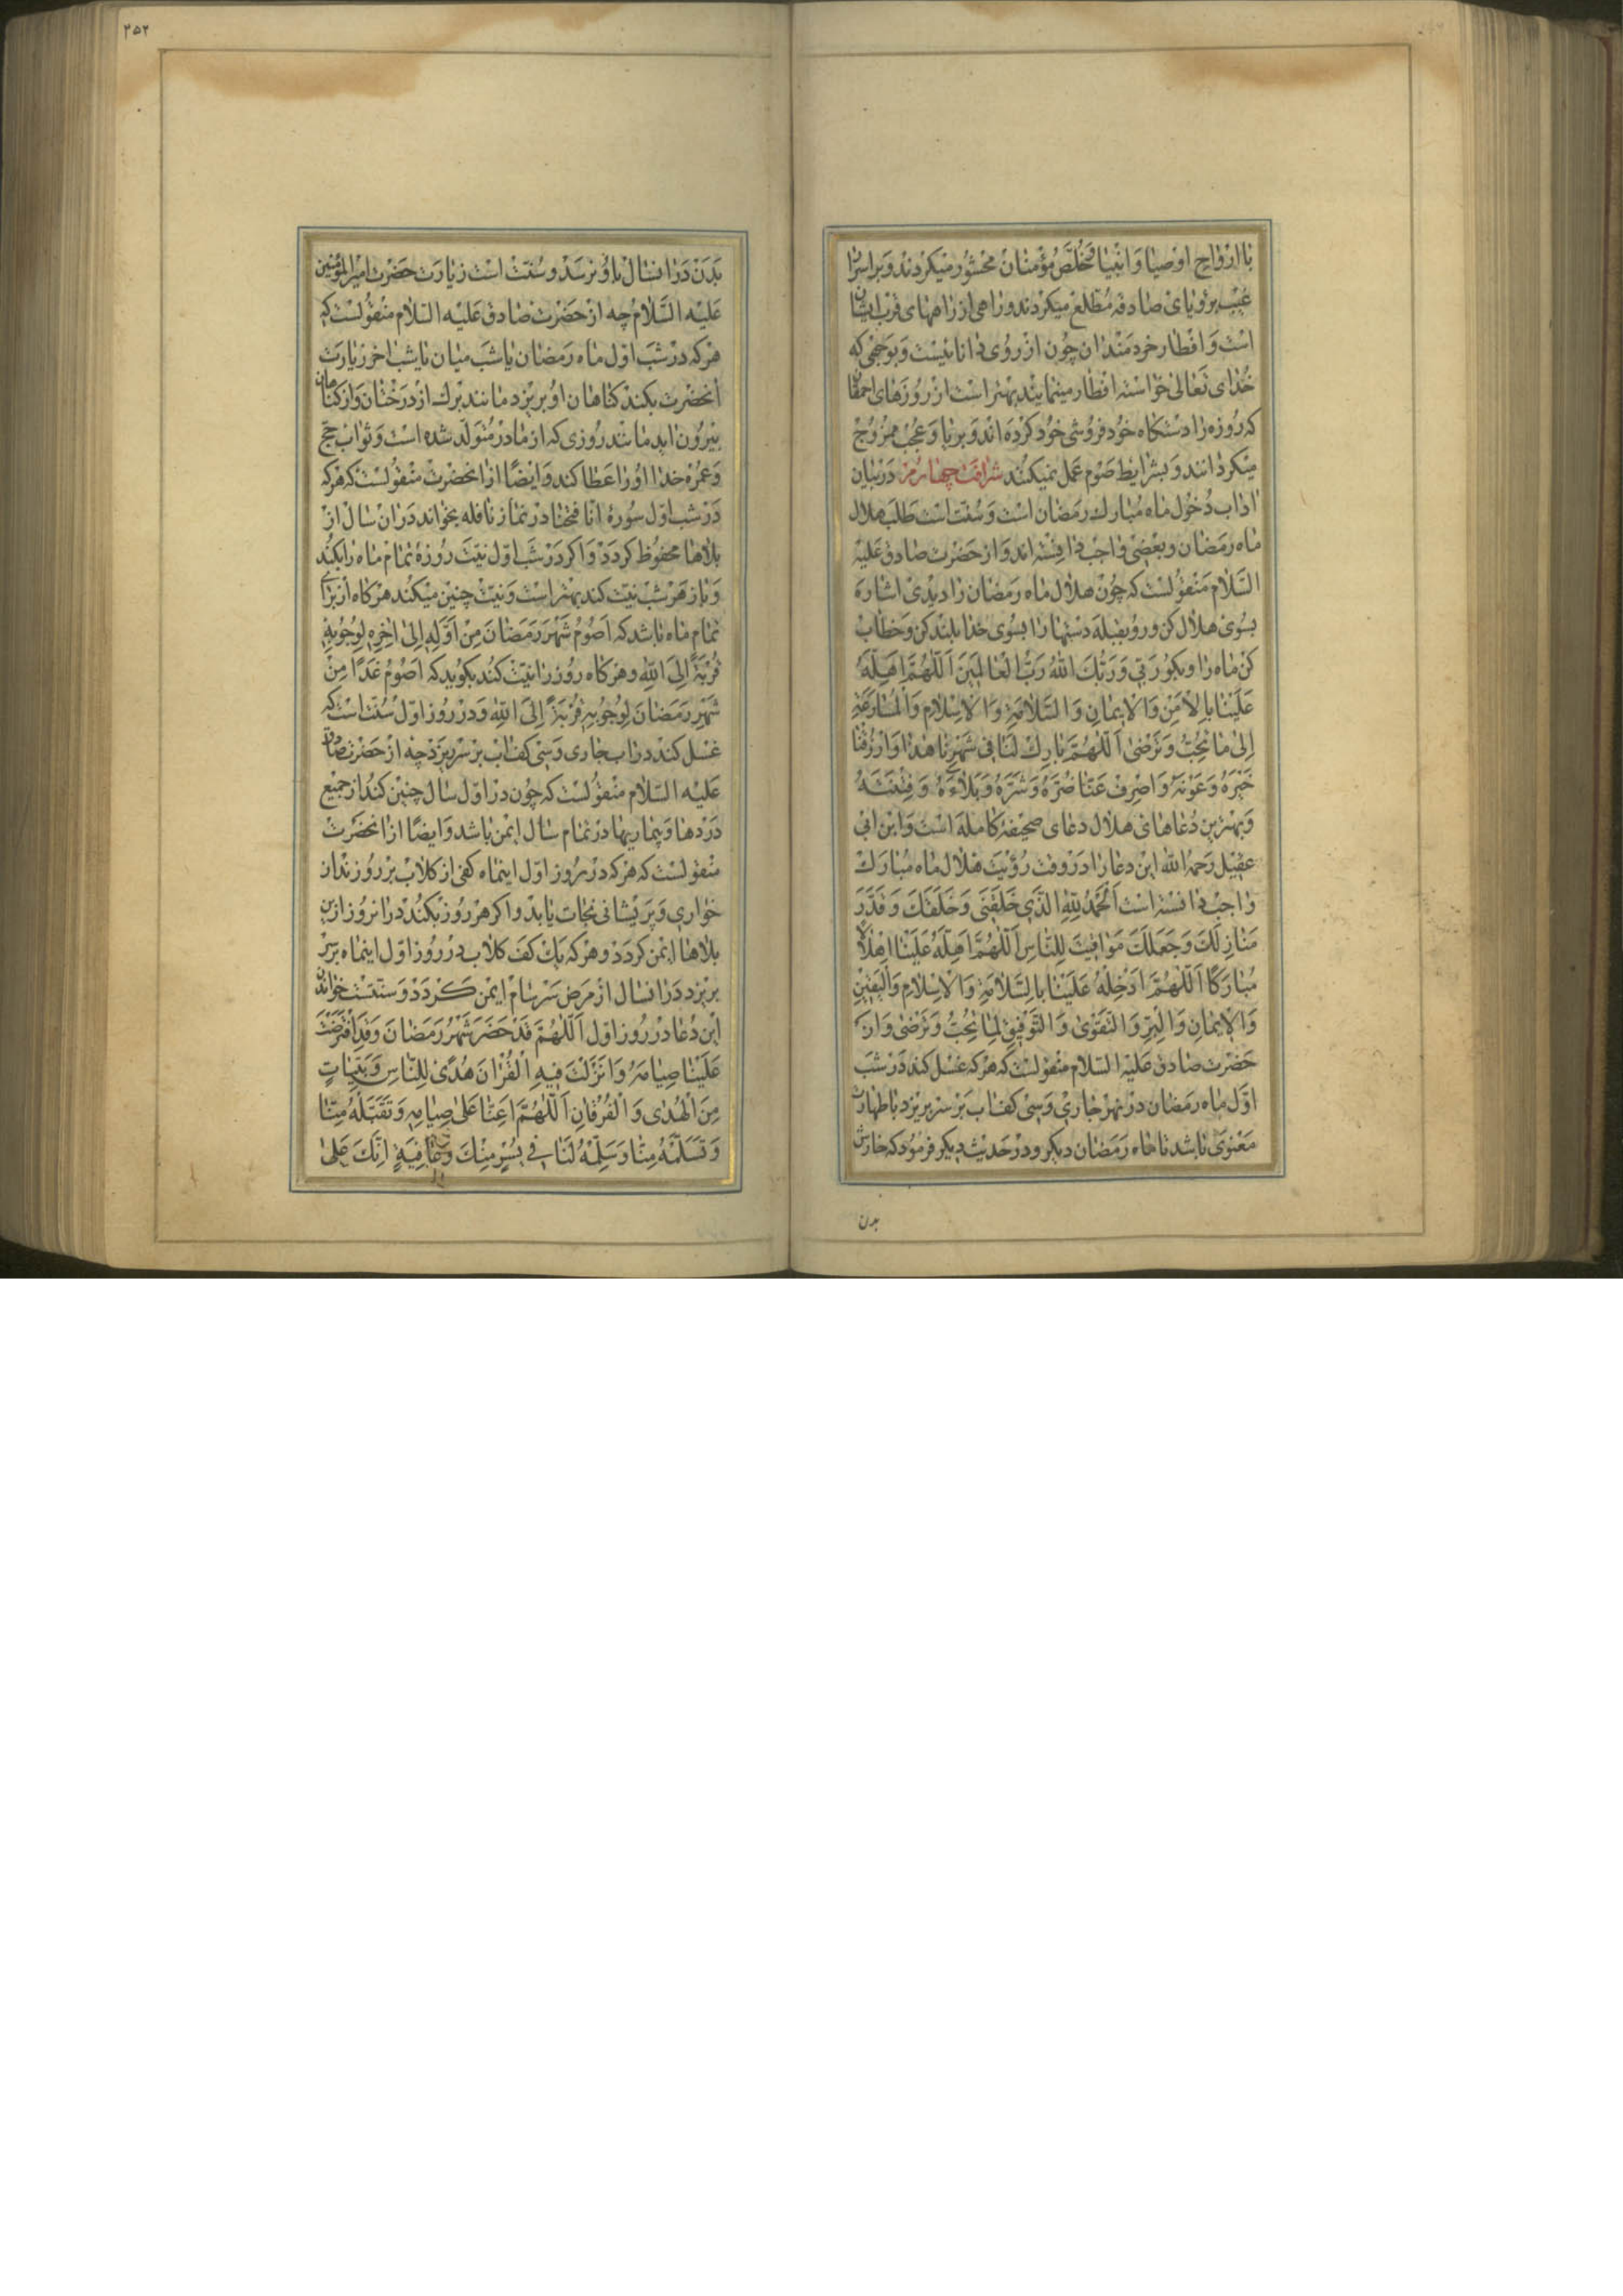 با ارواح اوصیا و انبیا و مخلص مؤمنان محشور میکردند و بر اسرار
غیب برؤیای صادقه مطلع میکردند و راهی از راههای قرب ایشان
است و افطار خردمندان چون از روی دانائیست و بوجهی که
خدای تعالی خواسته افطار مینمایند بهتر است از روزهای احمقان
که روزه را دستکاه خودفروشی خود کرده اند و بریا و عجب ممزوج
میکردانند و بشرایط صوم عمل نمیکنند شرافت چهارم در بیان
اداب دخول ماه مبارک رمضان است و سنت است طلب هلال
ماه رمضان و بعضی واجب دانسته اند و از حضرت صادق علیه
السلام منقولست که چون هلال ماه رمضان را دیدی اشاره
بسوی هلال مکن و رو بقبله دستها را بسوی خدا بلند کن و خطاب
کن ماه را و بکو رَبّی وَرَبُّكَ اللهُ رَبُّ الْعالَمینَ اَللّهُمَّ اَهِلَّهُ
عَلَیْنا بِالْاَمْنِ وَالْایمانِ وَالسَّلامَةِ وَالْاِسْلامِ وَالْمُسارَعَةِ
اِلی ما تُحِبُّ وَتَرْضی اَللّهُمَّ بارِكْ لَنا فی شَهْرِنا هذا وَارْزُقْنا
خَیْرَهُ وَعَوْنَهُ وَاصْرِفْ عَنّا ضُرَّهُ وَشَرَّهُ وَبَلاءَهُ وَفِتْنَتَهُ
و بهترین دعاهای هلال دعای صحیفه کامله است و ابن ابی
عقیل رحمه الله این دعا را در وقت رؤیت هلال ماه مبارک
واجب دانسته است اَلْحَمْدُ لِلّهِ الَّذی خَلَقَنی وَخَلَقَكَ وَقَدَّرَ
مَنازِلَكَ وَجَعَلَكَ مَواقیتَ لِلنّاسِ اَللّهُمَّ اَهِلَّهُ عَلَیْنا اِهْلالاً
مُبارَكاً اَللّهُمَّ اَدْخِلْهُ عَلَیْنا بِالسَّلامَةِ وَالْاِسْلامِ وَالْیَقینِ
وَالْایمانِ وَالْبِرِّ وَالتَّقْوی وَالتَّوْفیقِ لِما تُحِبُّ وَتَرْضی و از
حضرت صادق علیه السلام منقولست که هرکه غسل کند در شب
اول ماه رمضان در نهر جاری و سی کف اب بر سر بریزد با طهارت
معنوی باشد تا ماه رمضان دیکر و در حدیث دیکر فرمود که خارش
بدن
۲۵۲
بدن در انسال باو نرسد و سنت است زیارت حضرت امیرالمؤمنین
علیه السلام چه از حضرت صادق علیه السلام منقولست که
هرکه در شب اول ماه رمضان یا شب میان یا شب اخر زیارت
انحضرت بکند کناهان او بریزد مانند برک از درختان و از کناهان
بیرون اید مانند روزی که از مادر متولد شده است و ثواب حج
و عمره خدا او را عطا کند و ایضا از انحضرت منقولست که هرکه
در شب اول سوره انا فتحنا در نماز نافله بخواند در ان سال از
بلاها محفوظ کردد و اکر در شب اول نیت روزه تمام ماه را بکند
و باز هر شب نیت کند بهتر است و نیت چنین میکند هرکاه از برای
تمام ماه باشد که اَصُومُ شَهْرَ رَمَضانَ مِنْ اَوَّلِهِ اِلی اخِرِهِ لِوُجُوبِهِ
قُرْبَةً اِلَی اللهِ و هرکاه روز را نیت کند بکوید که اَصُومُ غَداً مِنْ
شَهْرِ رَمَضانَ لِوُجُوبِهِ قُرْبَةً اِلَی اللهِ و در روز اول سنت است که
غسل کند در اب جاری و سی کف اب بر سر بریزد چه از حضرت صادق
علیه السلام منقولست که چون در اول سال چنین کند از جمیع
دردها و بیماریها در تمام سال ایمن باشد و ایضا از انحضرت
منقولست که هرکه در روز اول اینماه کفی از کلاب بر رو زند از
خواری و پریشانی نجات یابد و اکر هر روز بکند در انروز ازین
بلاها ایمن کردد و هرکه یک کف کلاب در روز اول اینماه بر سر
بریزد در انسال از مرض سرسام ایمن کردد و سنتست خواندن
این دعا در روز اول اَللّهُمَّ قَدْ حَضَرَ شَهْرُ رَمَضانَ وَقَدِ افْتَرَضْتَ
عَلَیْنا صِیامَهُ وَاَنْزَلْتَ فیهِ الْقُرْانَ هُدیً لِلنّاسِ وَبَیِّناتٍ
مِنَ الْهُدی وَالْفُرْقانِ اَللّهُمَّ اَعِنّا عَلی صِیامِهِ وَتَقَبَّلْهُ مِنّا
وَتَسَلَّمْهُ مِنّا وَسَلِّمْهُ لَنا فی یُسْرٍ مِنْكَ وَعافِیَةٍ اِنَّكَ عَلی